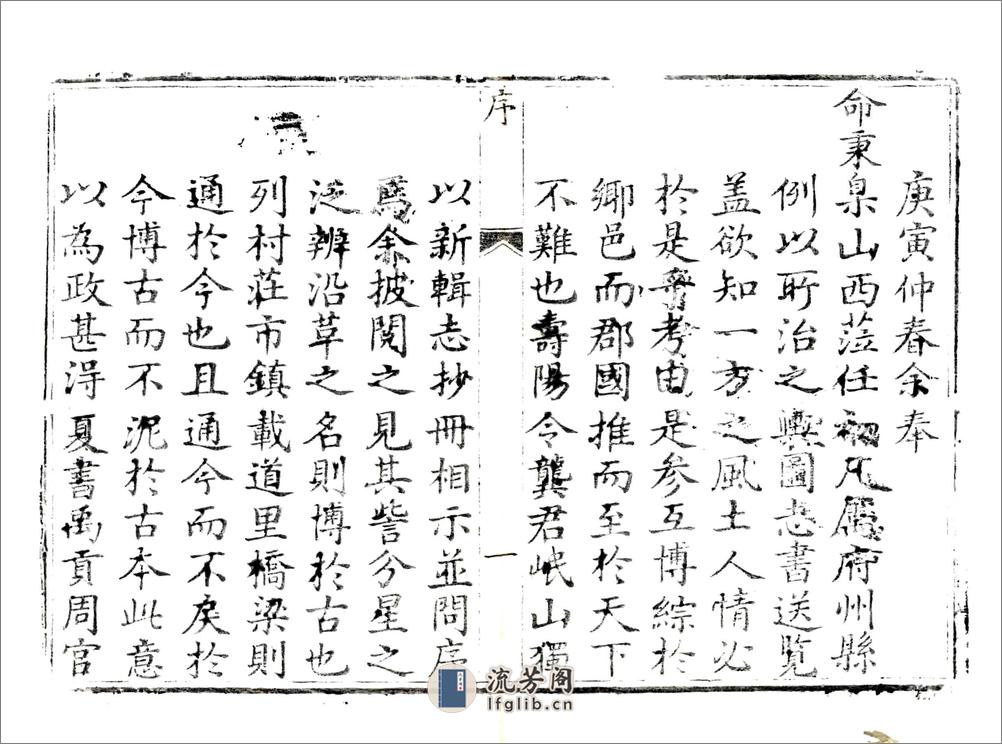 庚寅仲春余奉
命秉臬山西蒞任初凡屬府州縣
例以所治之輿圖志書送覧
盖欲知一方之風土人情必
於是考由是参互博綜於
鄉邑而郡國推而至於天下
不難也壽陽令龔君岷山獨
序
一
以新輯志抄冊相示並問序
焉余披閱之見其訾分星之
泛辨沿革之名則博於古也
列村莊市鎮載道里橋梁則
通於今也且通今而不戾於
今博古而不泥於古本此意
以為政甚得夏書禹貢周官
流芳阁
lfglib.cn